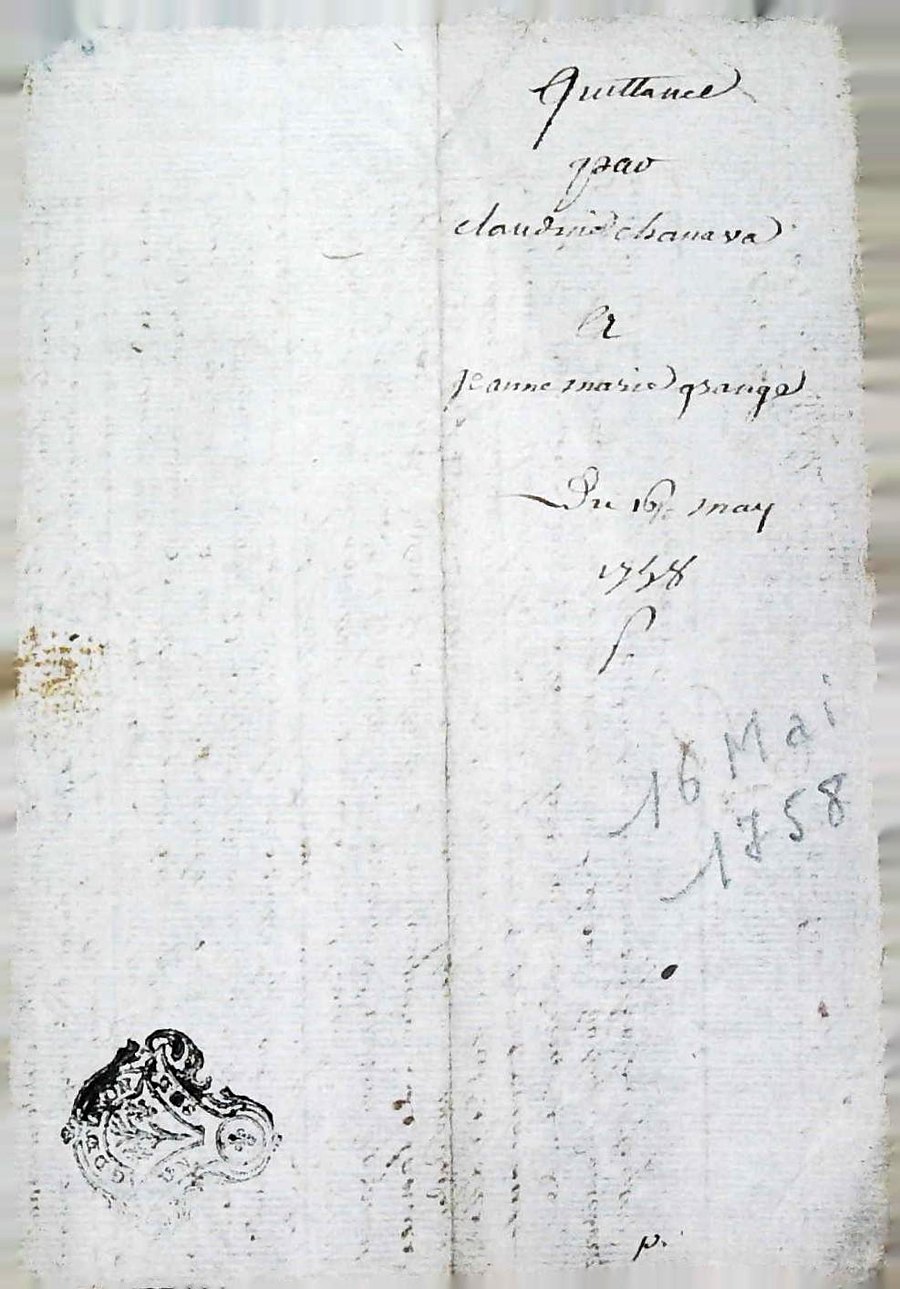 Quittance
par
claudine chanava
A
jeanne marie grange
Du 16e may
1758
16 Mai
1758
p.